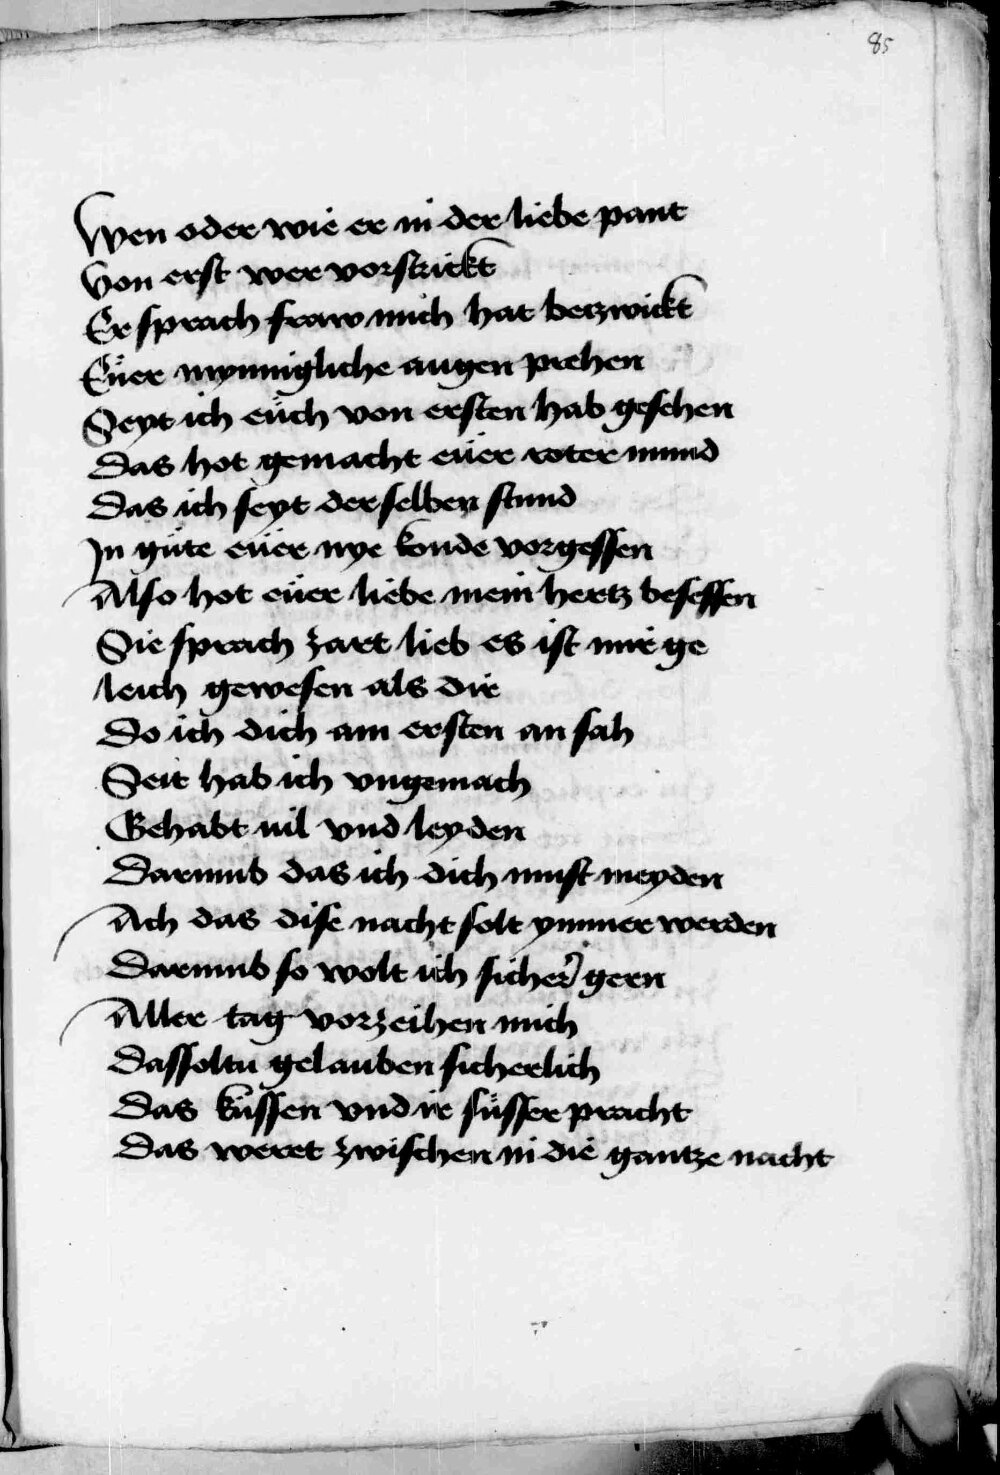 85
Wen oder wie er in der liebe pant
Von erst wer vorstrickt
Er sprach fraw mich hat betzwickt
Eüer mynnigliche augen prehen
Seyt ich eüch von ersten hab gesehen
Das hot gemacht eüer roter mund
Das ich seyt der selben stund
In güte eüer nye konde vorgessen
Also hot eüer liebe mein hertz besessen
Sie sprach zart lieb es ist mir ge
leich gewesen als dir
Do ich dich am ersten an sah
Seit hab ich vngemach
Gehabt uil vnd leyden
Darumb das ich dich must meyden
Ach das dise nacht solt ymmer werden
Darumb so wolt ich sicher gern
Aller tag vorzeihen mich
Dassoltu gelauben sicherlich
Das küssen vnd ir süsser pracht
Das weret zwischen in die gantze nacht